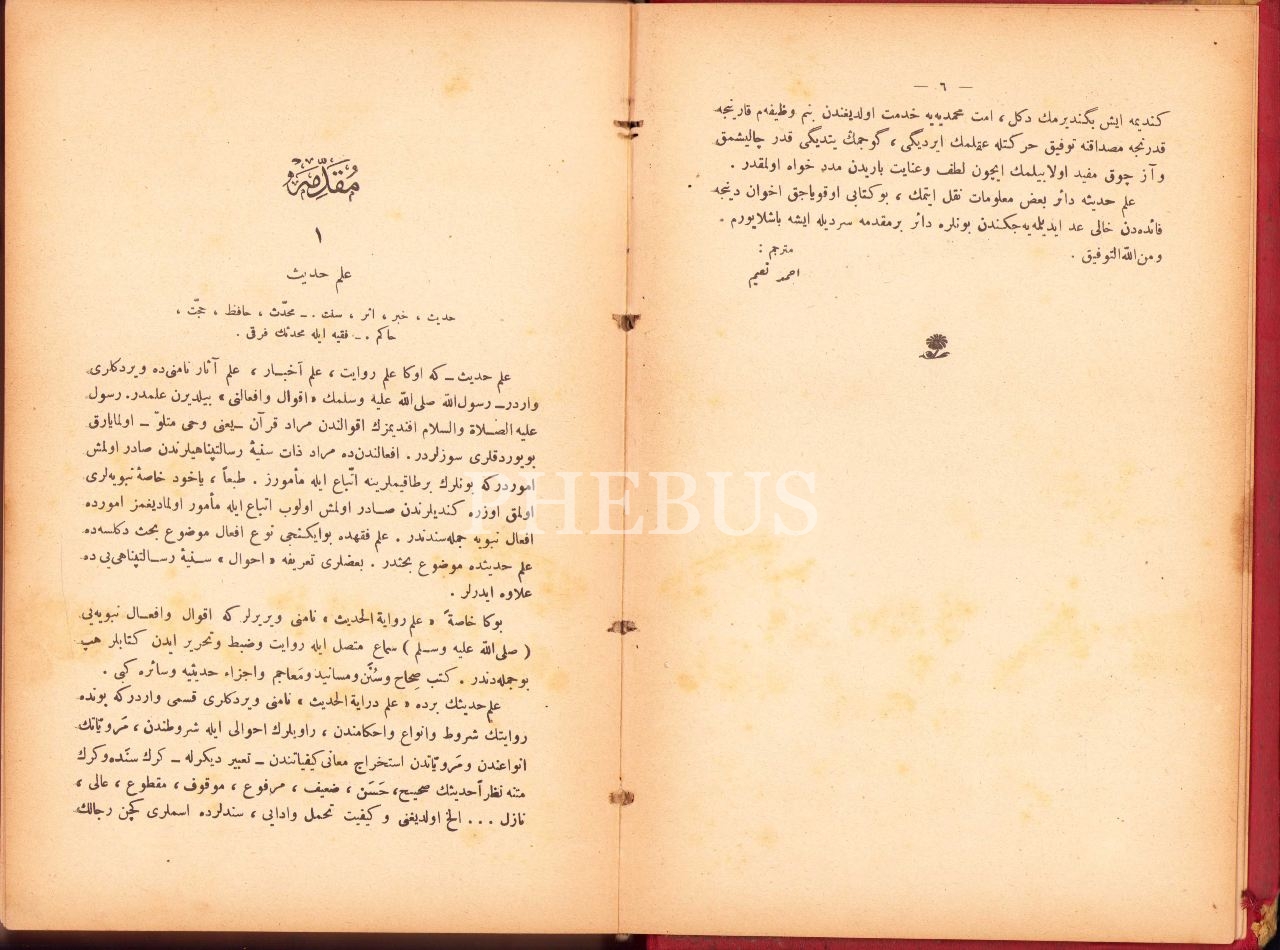 — ٦ —
كنديمه ايش بگنديرمك دكل ، امت محمديه‌يه خدمت اولديغندن بنم وظيفه‌م قارينجه
قدرنجه مصداقنه توفيق حركتله عقلمك ايرديگى ، گوجمك يتديگى قدر چاليشمق
و آز چوق مفيد اولابيلمك ايچون لطف وعنايت باريدن مدد خواه اولمقدر .
علم حديثه دائر بعض معلومات نقل ايتمك ، بوكتابى اوقوياجق اخوان دينجه
فائده‌دن خالى عد ايديلميه‌جكندن بونلره دائر برمقدمه سرديله ايشه باشلايورم .
ومن اللّه التوفيق .
مترجم :
احمد نعيم
مُقَدِّمَه
١
علم حديث
حديث ، خبر ، اثر ، سنت . ــ محدّث ، حافظ ، حجّت ،
حاكم . ــ فقيه ايله محدثك فرقى .
علم حديث ــ كه اوكا علم روايت ، علم اخبار ، علم آثار نامنى‌ده ويردكلرى
واردر ــ رسول اللّه صلى اللّه عليه وسلمك « اقوال وافعالنى » بيلديرن علمدر. رسول
عليه الصلاة والسلام افنديمزك اقوالندن مراد قرآن ــ يعنى وحى متلوّ ــ اولمايارق
بويوردقلرى سوزلردر. افعالندن‌ده مراد ذات سنيۀ رسالتپناهيلرندن صادر اولمش
اموردركه بونلرك برطاقيملرينه اتّباع ايله مأمورز . طبعاً ، ياخود خاصۀ نبويه‌لرى
اولمق اوزره كنديلرندن صادر اولمش اولوب اتباع ايله مأمور اولماديغمز امورده
افعال نبويه جمله‌سندندر . علم فقهده بوايكنجى نوع افعال موضوع بحث دكلسه‌ده
علم حديثده موضوع بحثدر . بعضلرى تعريفه « احوال » سنيۀ رسالتپناهى‌يى ده
علاوه ايدرلر .
بوكا خاصةً « علم رواية الحديث » نامنى ويريرلر كه اقوال وافعال نبويه‌يى
( صلى اللّه عليه وسلم ) سماع متصل ايله روايت وضبط وتحرير ايدن كتابلر هپ
بوجمله‌دندر . كتب صِحاح وسُنَن ومسانيد ومَعاجم واجزاء حديثيه وسائره كبى .
علم حديثك برده « علم دراية الحديث » نامنى ويردكلرى قسمى واردركه بونده
روايتك شروط وانواع واحكامندن ، راويلرك احوالى ايله شروطندن ، مَروياتك
انواعندن ومَروياتدن استخراج معانى كيفياتندن ــ تعبير ديكرله ــ كرك سنده وكرك
متنه نظراً حديثك صحيح، حَسَن ، ضعيف ، مرفوع ، موقوف ، مقطوع ، عالى ،
نازل . . . الخ اولديغنى و كيفيت تحمل وادايى ، سندلرده اسملرى كچن رجالك
PHEBUS